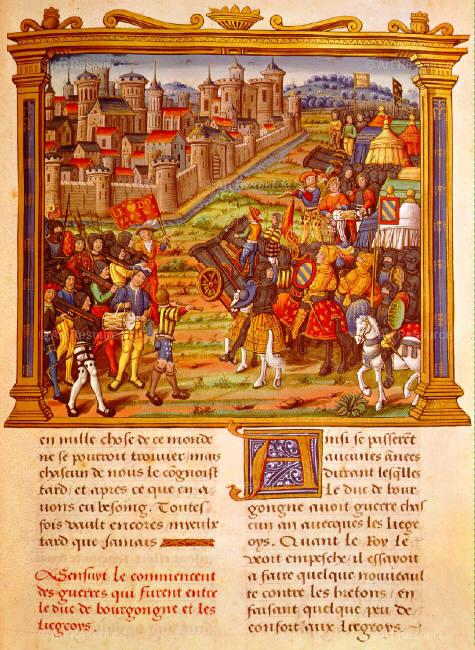 en mille chose de ce monde
ne se pourroit trouuier/ mais
chascun de nous le cognoist
tard/ et apres ce que en a,
uons eu besoing. Toutes
fois vault encores myeulx
tard que Jamais
Sensuyt le commencent
des guerres qui furent entre
le duc de bourgongne et les
liegeoys.
Ainsi se passerent
aucunes annees
durant lesqlles
le duc de bour
gongne auoit guerre chas
cun an auecques les liege
oys. Quant le Roy le
veoit empesche/ il essayoit
a faire quelque nouueaul
te contre les bretons/ en
faisant quelque peu de
confort aux liegeoys.